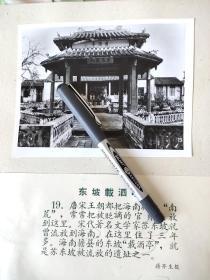 东坡載酒
19. 唐宋王朝都把海南 “南
荒”，常常把被貶謫的官 放
到这里。宋代著名文学家苏东坡
曾流放到海南。在这里住了三年
多。海南儋县的东坡“载酒亭”，就
是苏东坡被流放的遗址之一。
蒋齐生摄